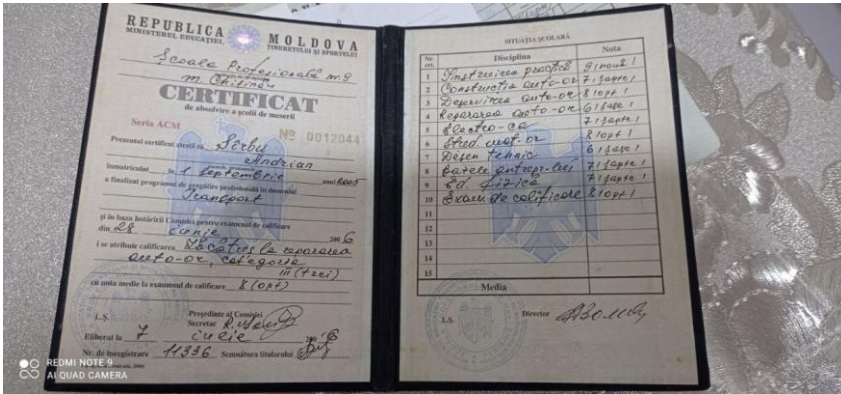 REPUBLICA MOLDOVA
MINISTERUL EDUCAŢIEI, TINERETULUI ŞI SPORTULUI
Școala Profesională nr. 9
m. Chișinău
CERTIFICAT
de absolvire a şcolii de meserii
Seria ACM
Nº 0012044
Prezentul certificat atestă că Sîrbu
Andrian
înmatriculat la 1 septembrie anul 2005
a finalizat programul de pregătire profesională în domeniul
Transport
şi în baza hotărîrii Comisiei pentru examenul de calificare
din 28 iunie 2006
i se atribuie calificarea Lăcătuș la repararea
auto-or, categoria
III (trei)
cu nota medie la examenul de calificare 8 (opt)
Preşedinte al Comisiei
L.Ş. Secretar
Eliberat la 7 iulie 2006
Nr. de înregistrare 11336 Semnătura titularului
SITUAŢIA ŞCOLARĂ
Nr. crt. Disciplina Nota
1 Instruirea practică 9 / nouă /
2 Construcția auto-or 7 / șapte /
3 Deservirea auto-or 8 / opt /
4 Repararea auto-or 6 / șase /
5 Electro-ca 7 / șapte /
6 Stud. mat-or 8 / opt /
7 Desen tehnic 6 / șase /
8 Bazele antrepr-lui 7 / șapte /
9 Ed. fizică 7 / șapte /
10 Exam. de calificare 8 / opt /
11
12
13
14
15
Media
L.Ş. Director
REDMI NOTE 9
AI QUAD CAMERA